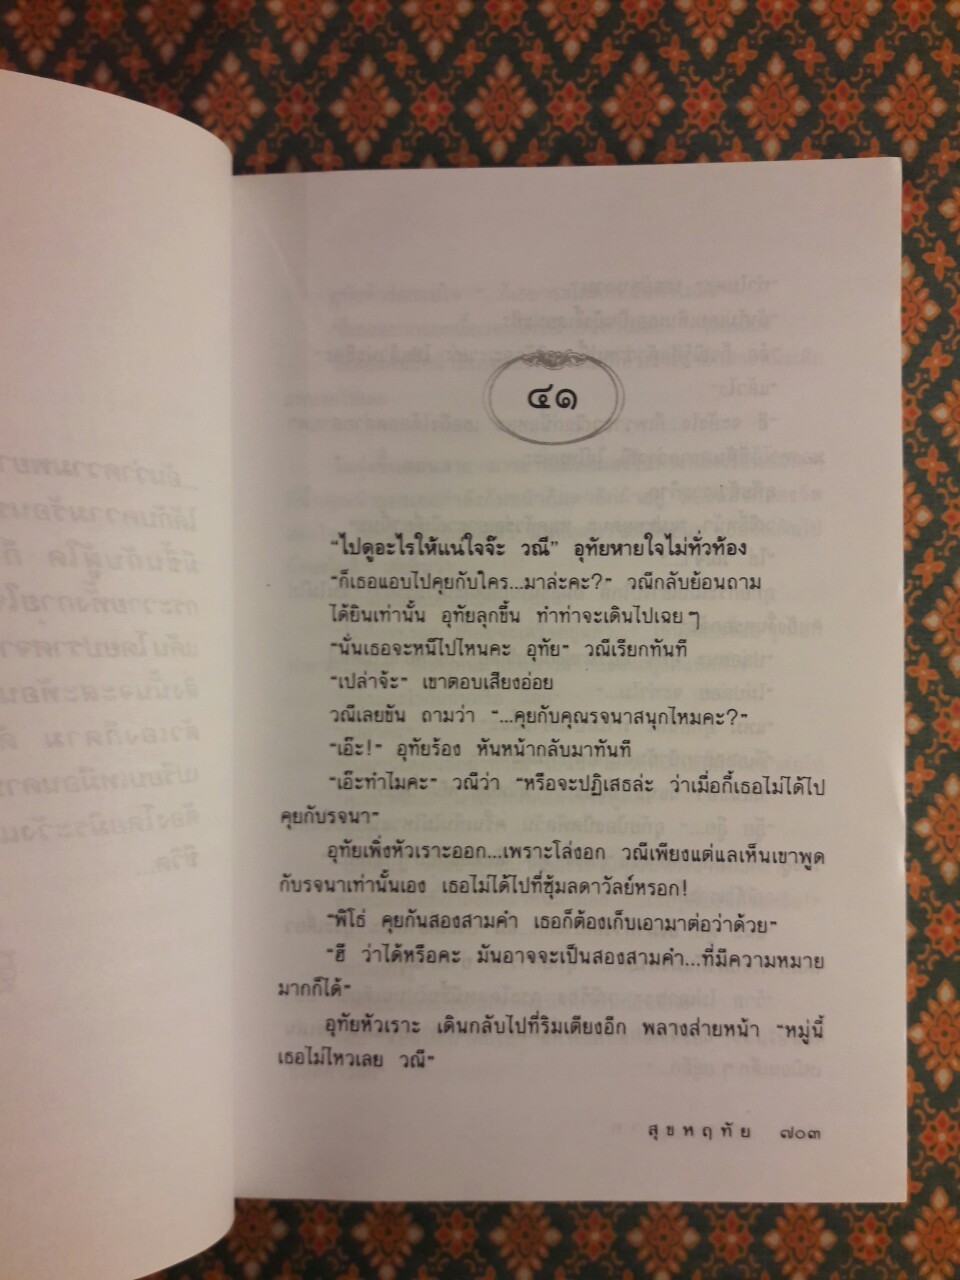 ๔๑
"ไปดูอะไรให้แน่ใจจ๊ะ วณี" อุทัยหายใจไม่ทั่วท้อง
"ก็เธอแอบไปคุยกับใคร...มาล่ะคะ?" วณีกลับย้อนถาม
ได้ยินเท่านั้น อุทัยลุกขึ้น ทำท่าจะเดินไปเฉยๆ
"นั่นเธอจะหนีไปไหนคะ อุทัย" วณีเรียกทันที
"เปล่าจ้ะ" เขาตอบเสียงอ่อย
วณีเลยขัน ถามว่า "...คุยกับคุณรจนาสนุกไหมคะ?"
"เอ๊ะ!" อุทัยร้อง หันหน้ากลับมาทันที
"เอ๊ะทำไมคะ" วณีว่า "หรือจะปฏิเสธล่ะ ว่าเมื่อกี้เธอไม่ได้ไป
คุยกับรจนา"
อุทัยเพิ่งหัวเราะออก...เพราะโล่งอก วณีเพียงแต่แลเห็นเขาพูด
กับรจนาเท่านั้นเอง เธอไม่ได้ไปที่ซุ้มลดาวัลย์หรอก!
"พิโธ่ คุยกันสองสามคำ เธอก็ต้องเก็บเอามาต่อว่าด้วย"
"ฮึ ว่าได้หรือคะ มันอาจจะเป็นสองสามคำ...ที่มีความหมาย
มากก็ได้"
อุทัยหัวเราะ เดินกลับไปที่ริมเตียงอีก พลางส่ายหน้า "หมู่นี้
เธอไม่ไหวเลย วณี"
สุขหฤทัย ๗๐๓